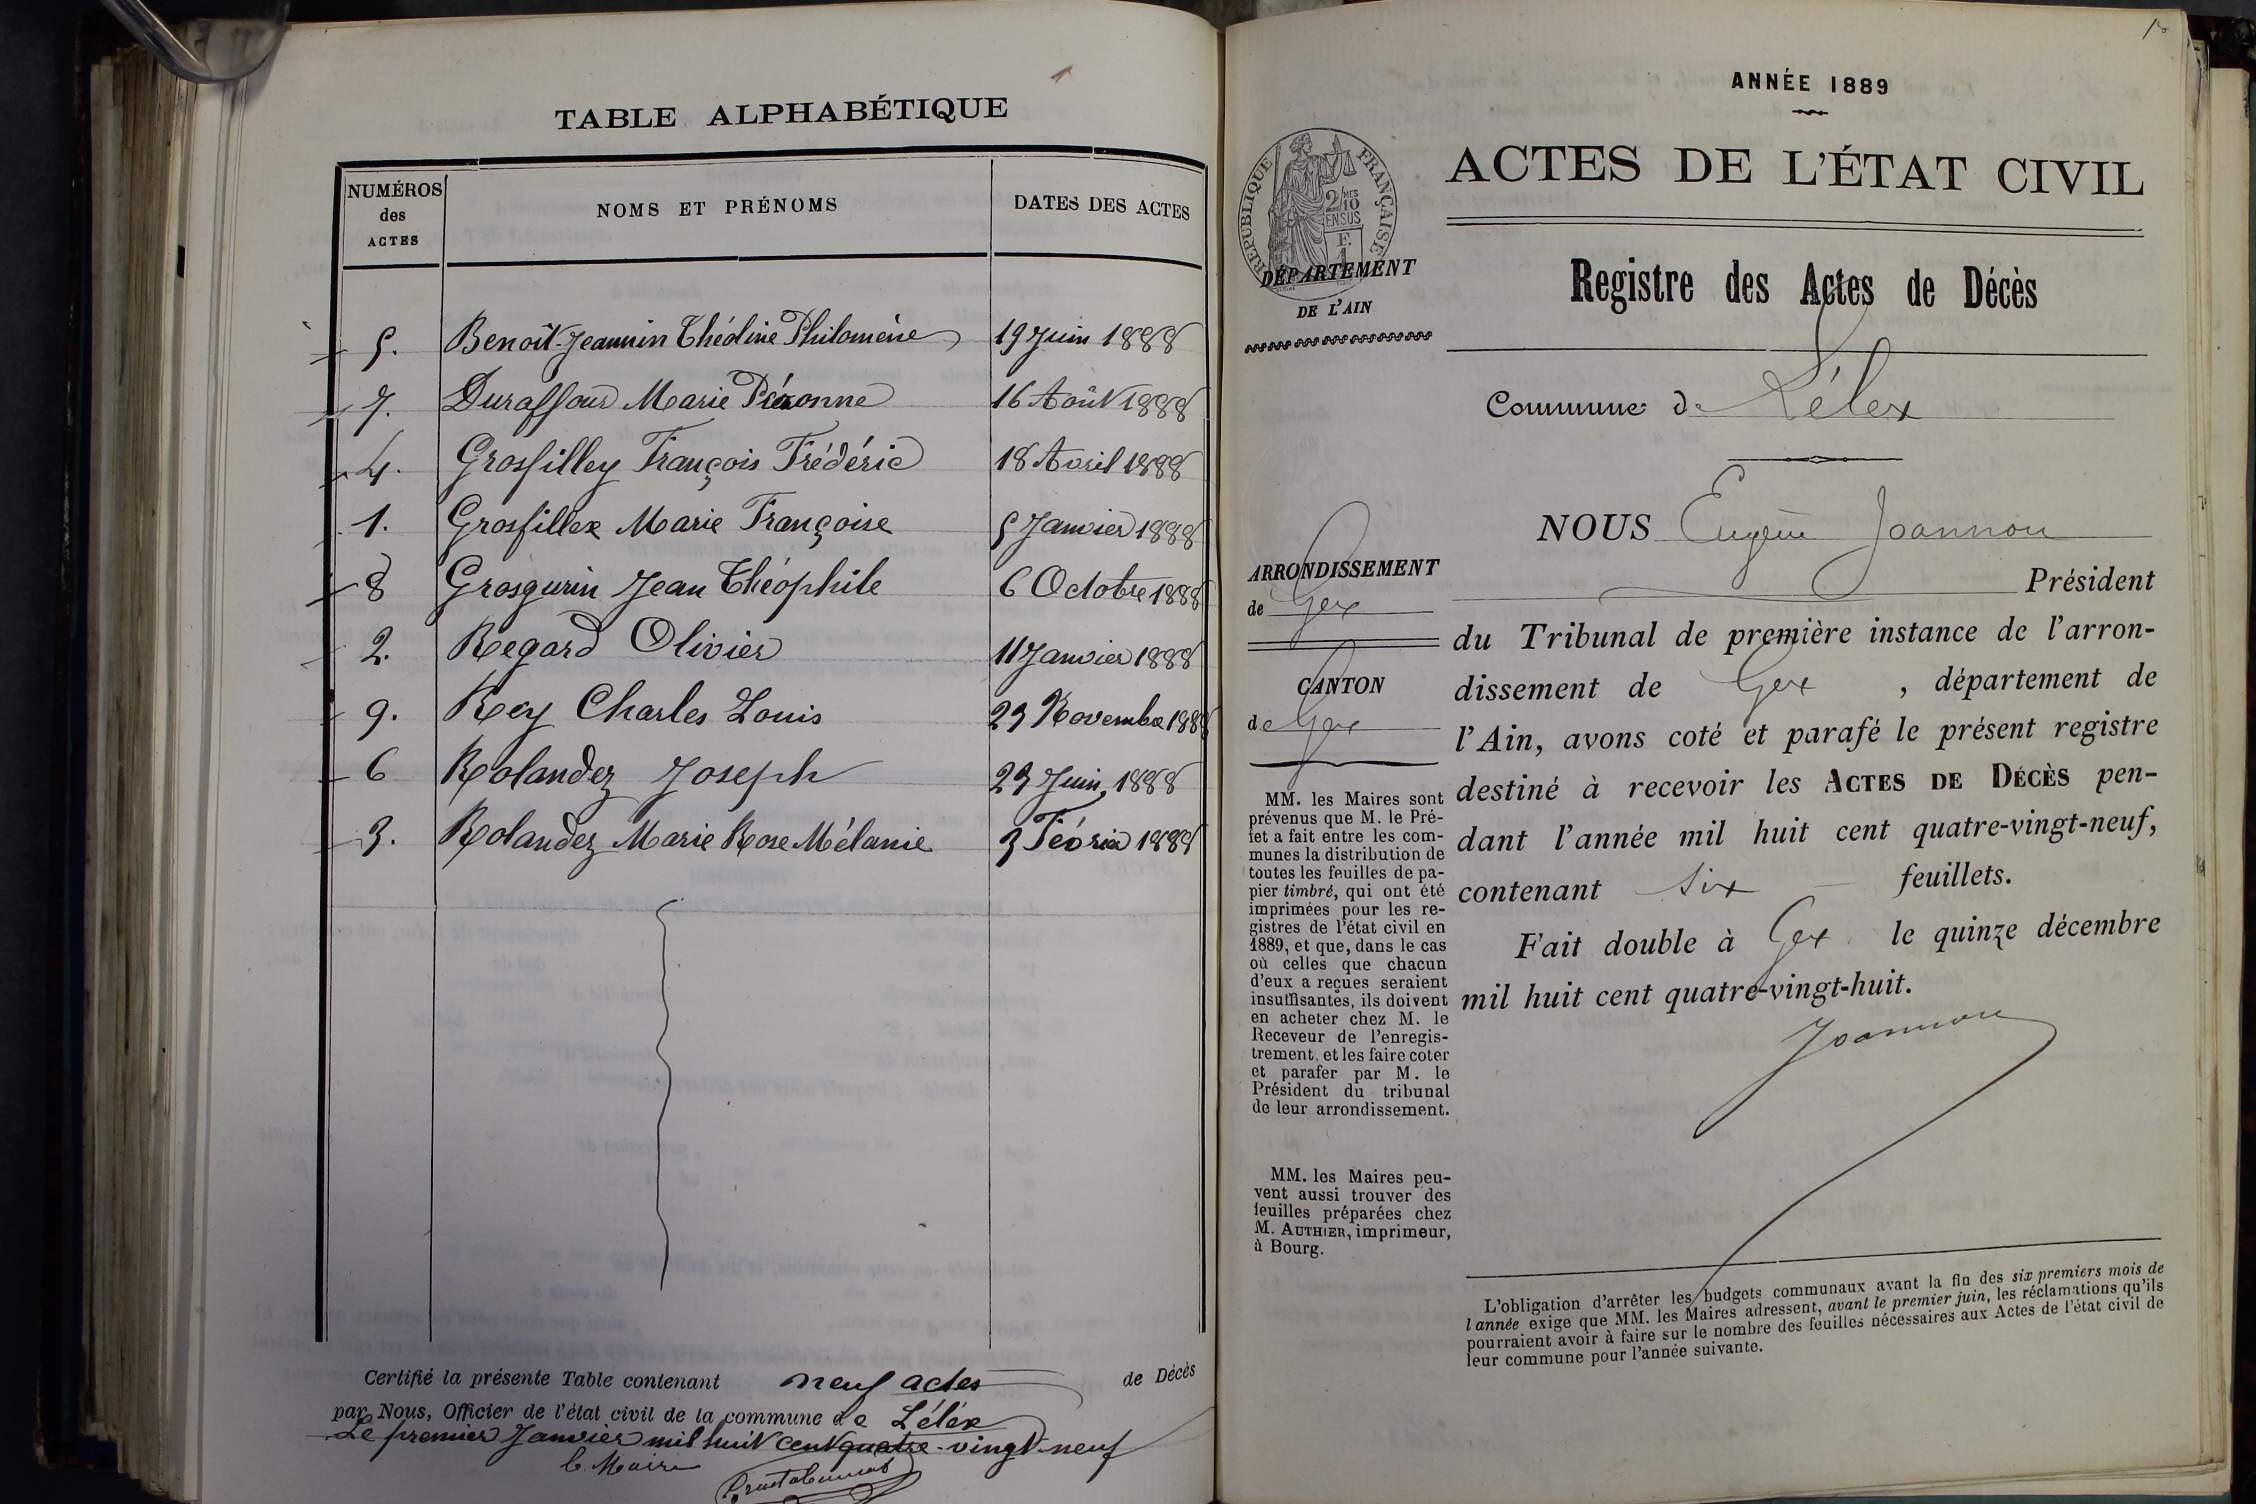 TABLE ALPHABÉTIQUE
NUMÉROS des ACTES
NOMS ET PRÉNOMS
DATES DES ACTES
5. Benoit-Jeannin Théoline Philomène 19 Juin 1888
7. Duraffour Marie Péronne 16 Août 1888
4. Grosfilley François Frédéric 18 Avril 1888
1. Grosfillex Marie Françoise 5 Janvier 1888
8 Grosgurin Jean Théophile 6 Octobre 1888
2. Regard Olivier 11 Janvier 1888
9. Rey Charles Louis 23 Novembre 1888
6 Rolandez Joseph 23 Juin 1888
3. Rolandez Marie Rose Mélanie 3 Février 1888
Certifié la présente Table contenant neuf actes de Décès
par Nous, Officier de l'état civil de la commune de Lélex
Le premier Janvier mil huit cent quatre-vingt-neuf
le Maire
ANNÉE 1889
ACTES DE L'ÉTAT CIVIL
RÉPUBLIQUE FRANÇAISE
2/10 MES
EN SUS
F.
1
DÉPARTEMENT
DE L'AIN
Registre des Actes de Décès
Commune de Lélex
ARRONDISSEMENT
de Gex
CANTON
de Gex
MM. les Maires sont
prévenus que M. le Pré-
fet a fait entre les com-
munes la distribution de
toutes les feuilles de pa-
pier timbré, qui ont été
imprimées pour les re-
gistres de l'état civil en
1889, et que, dans le cas
où celles que chacun
d'eux a reçues seraient
insuffisantes, ils doivent
en acheter chez M. le
Receveur de l'enregis-
trement, et les faire coter
et parafer par M. le
Président du tribunal
de leur arrondissement.
MM. les Maires peu-
vent aussi trouver des
feuilles préparées chez
M. AUTHIER, imprimeur,
à Bourg.
NOUS Eugène Joannon
Président
du Tribunal de première instance de l'arron-
dissement de Gex, département de
l'Ain, avons coté et parafé le présent registre
destiné à recevoir les ACTES DE DÉCÈS pen-
dant l'année mil huit cent quatre-vingt-neuf,
contenant six feuillets.
Fait double à Gex le quinze décembre
mil huit cent quatre-vingt-huit.
Joannon
L'obligation d'arrêter les budgets communaux avant la fin des six premiers mois de
l'année exige que MM. les Maires adressent, avant le premier juin, les réclamations qu'ils
pourraient avoir à faire sur le nombre des feuilles nécessaires aux Actes de l'état civil de
leur commune pour l'année suivante.